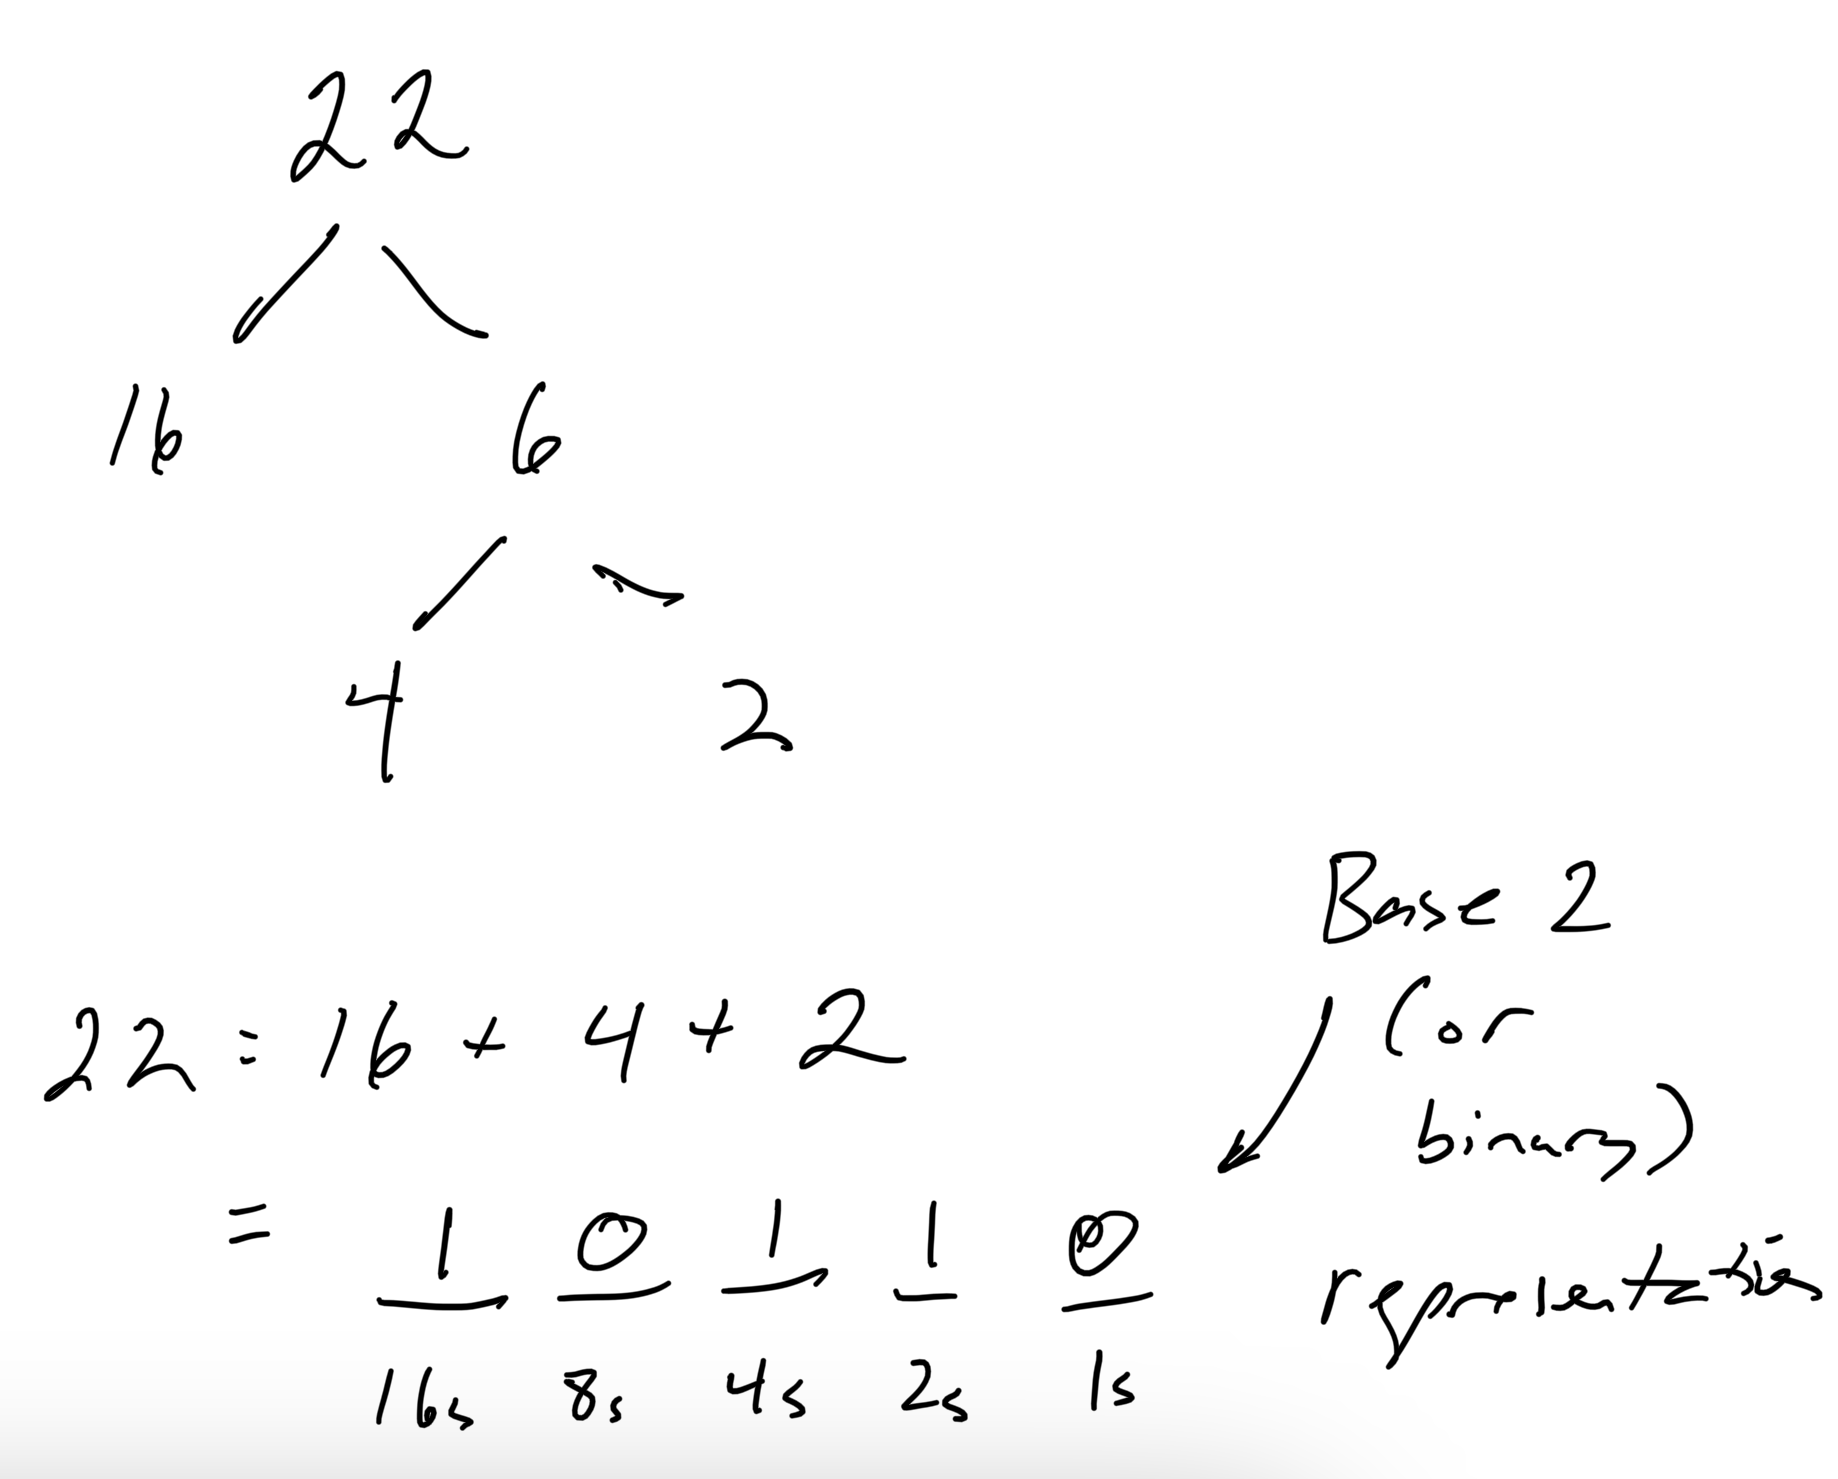 22
16 6
4 2
Base 2
22 = 16 + 4 + 2
(or
binary)
= 1 0 1 1 0
representation
16s 8s 4s 2s 1s